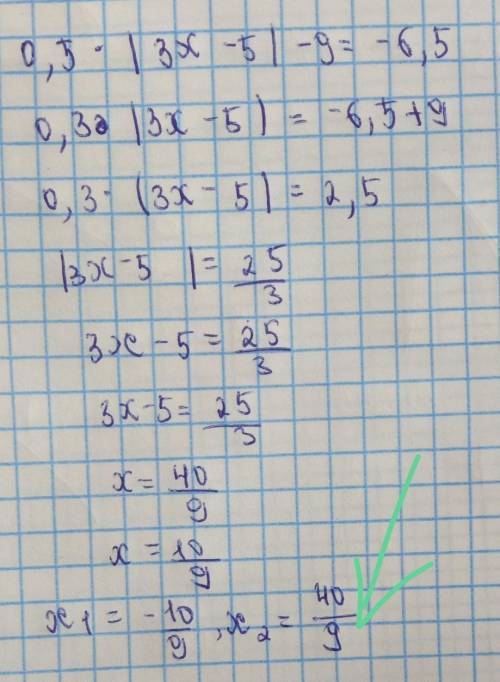 0,5 · |3x - 5| - 9 = -6,5
0,3 · |3x - 5| = -6,5 + 9
0,3 · (3x - 5| = 2,5
|3x - 5 | = 25/3
3x - 5 = 25/3
3x - 5 = 25/3
x = 40/9
x = 10/9
x1 = -10/9, x2 = 40/9